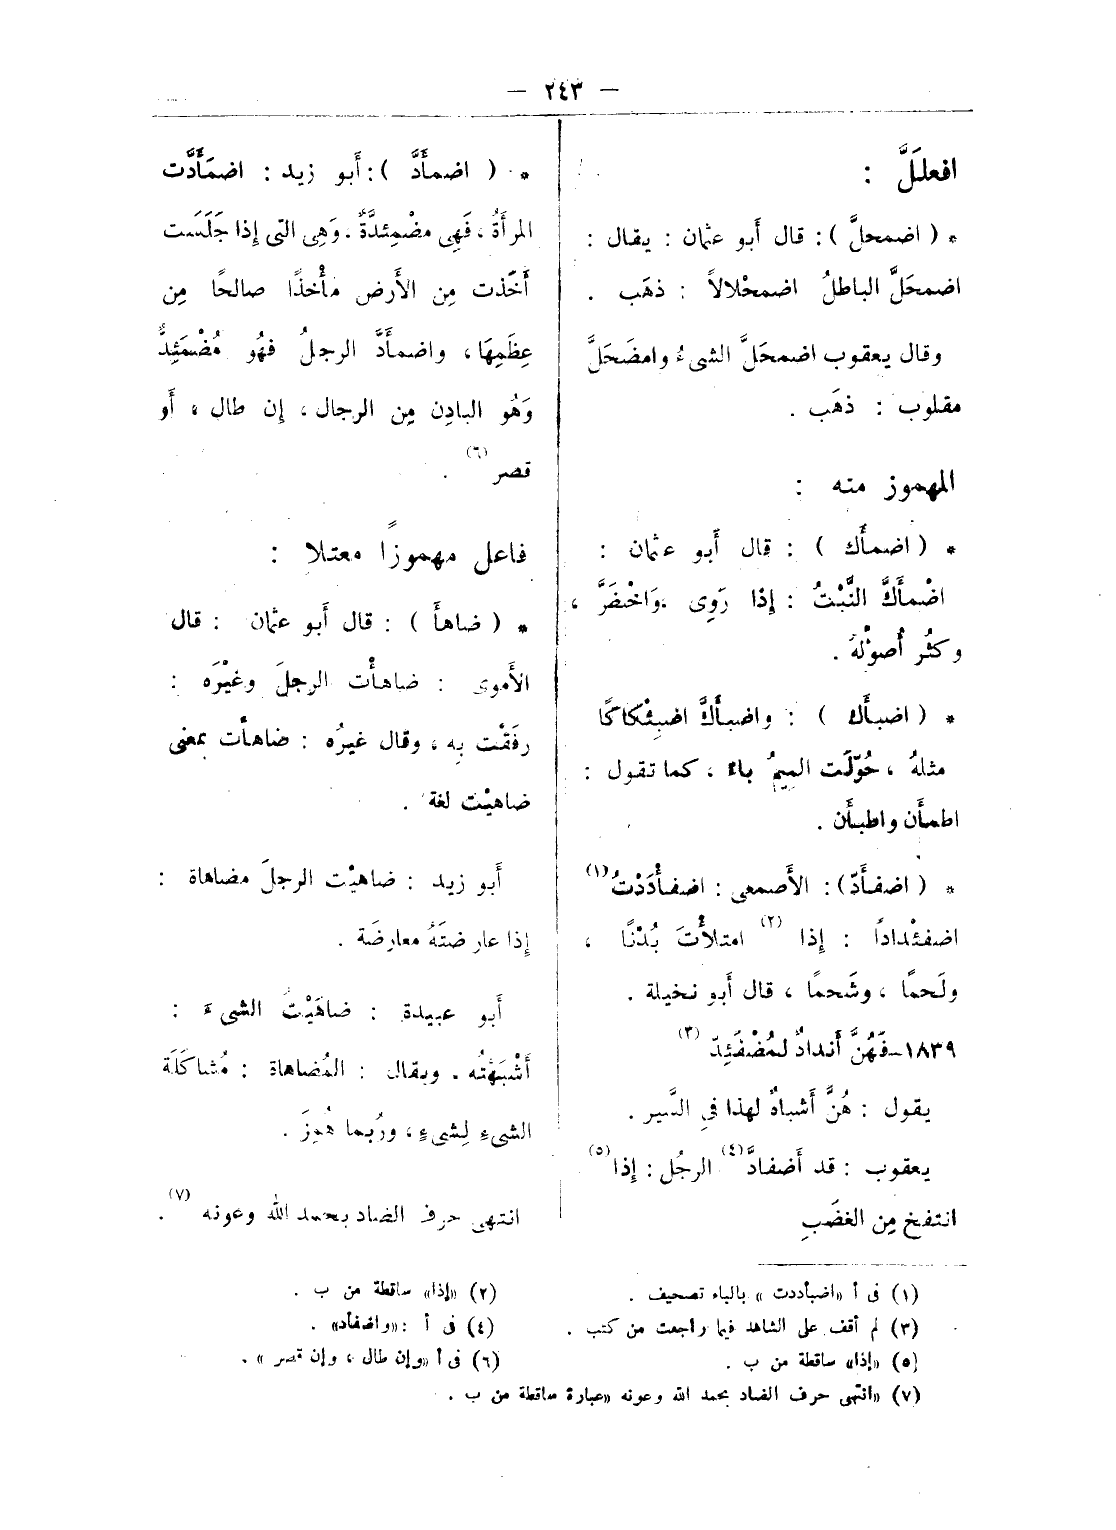 — ٢٤٣ —
افعلَلَّ :
* ( اضمحلَّ ) : قال أَبو عثمان : يقال :
اضمحَلَّ الباطلُ اضمحْلالاً : ذهَب .
وقال يعقوب اضمحَلَّ الشىءُ وامضَحَلَّ
مقلوب : ذهَب .
المهموز منه :
* ( اضمأَك ) : قال أَبو عثمان :
اضْمأَكَّ النَّبْتُ : إِذا رَوِى ، وَاخْضَرَّ ،
وكثُر أُصولُهُ .
* ( اضبأَك ) : واضبأَكَّ اضبِئْكاكًا
مثلهُ ، حُوّلَت الميمُ باءً ، كما تقول :
اطمأَن واطبأَن .
* ( اضفأَدّ ) : الأَصمعى : اضفأْدَدْتُ (١)
اضفئْداداً : إِذا (٢) امتلأْتَ بُدْنًا ،
ولَحمًا ، وشَحمًا ، قال أَبو نخيلة .
١٨٣٩-فَهُنَّ أَندادٌ لمُضْفَئِدّ (٣)
يقول : هُنَّ أَشباهٌ لهذا فىِ السَّير .
يعقوب : قد أَضفادَّ (٤) الرجُل : إِذا (٥)
انتفخ مِن الغضَبِ
* ( اضمأَدَّ ) : أَبو زيد : اضمَأَدَّت
المرأَةُ ، فَهِى مضْمِئدَّةٌ . وَهِى التى إِذا جَلَسَت
أَخَذت مِن الأَرض مأْخذًا صالحًا مِن
عِظَمِهَا ، واضمأَدَّ الرجلُ فهُو مُضْمَئِدٌّ
وَهُو البادِن مِن الرجال ، إِن طال ، أَو
قصر (٦) .
فاعل مهموزًا معتلا :
* ( ضاهأَ ) : قال أَبو عثمان : قال
الأَموى : ضاهأْت الرجلَ وغيْرَه :
رفَقْت بِه ، وقال غيرُه : ضاهأْت بمعنى
ضاهيْت لغة .
أَبو زيد : ضاهيْت الرجلَ مضاهاة :
إِذا عارضتَهُ معارضَة .
أَبو عبيدة : ضاهَيْتُ الشىءَ :
أَشْبَهْتُه . ويقال : المُضاهاة : مُشاكَلَة
الشىءِ لِشىءٍ ، ورُبما هُمِزَ .
انتهى حرف الضاد بحمد الله وعونه (٧) .
(١) فى أ «اضبأددت» بالباء تصحيف .
(٢) «إذا» ساقطة من ب .
(٣) لم أقف على الشاهد فيما راجعت من كتب .
(٤) فى أ : «واضفأد» .
(٥) «إذا» ساقطة من ب .
(٦) فى أ «وإن طال ، وإن قصر» .
(٧) «انتهى حرف الضاد بحمد الله وعونه «عبارة ساقطة من ب .